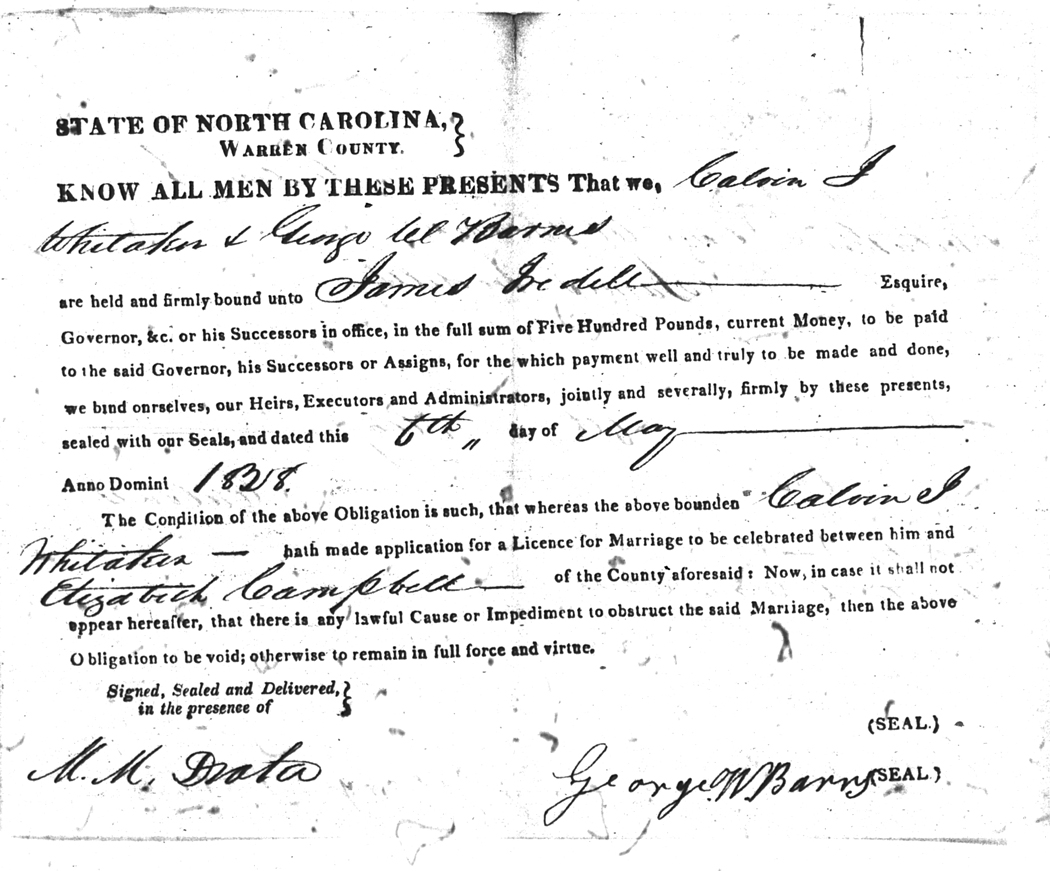 STATE OF NORTH CAROLINA,
WARREN COUNTY.
KNOW ALL MEN BY THESE PRESENTS That we, Calvin J
Whitaker & George W Barnes
are held and firmly bound unto James Iredell Esquire,
Governor, &c. or his Successors in office, in the full sum of Five Hundred Pounds, current Money, to be paid
to the said Governor, his Successors or Assigns, for the which payment well and truly to be made and done,
we bind onrselves, our Heirs, Executors and Administrators, jointly and severally, firmly by these presents,
sealed with our Seals, and dated this 6th „ day of May
Anno Domini 1828.
The Condition of the above Obligation is such, that whereas the above bounden Calvin J
Whitaker — hath made application for a Licence for Marriage to be celebrated between him and
Elizabeth Campbell — of the County aforesaid: Now, in case it shall not
appear hereafter, that there is any lawful Cause or Impediment to obstruct the said Marriage, then the above
Obligation to be void; otherwise to remain in full force and virtue.
Signed, Sealed and Delivered,
in the presence of
(SEAL.)
M. M. Drake George W Barnes (SEAL.)